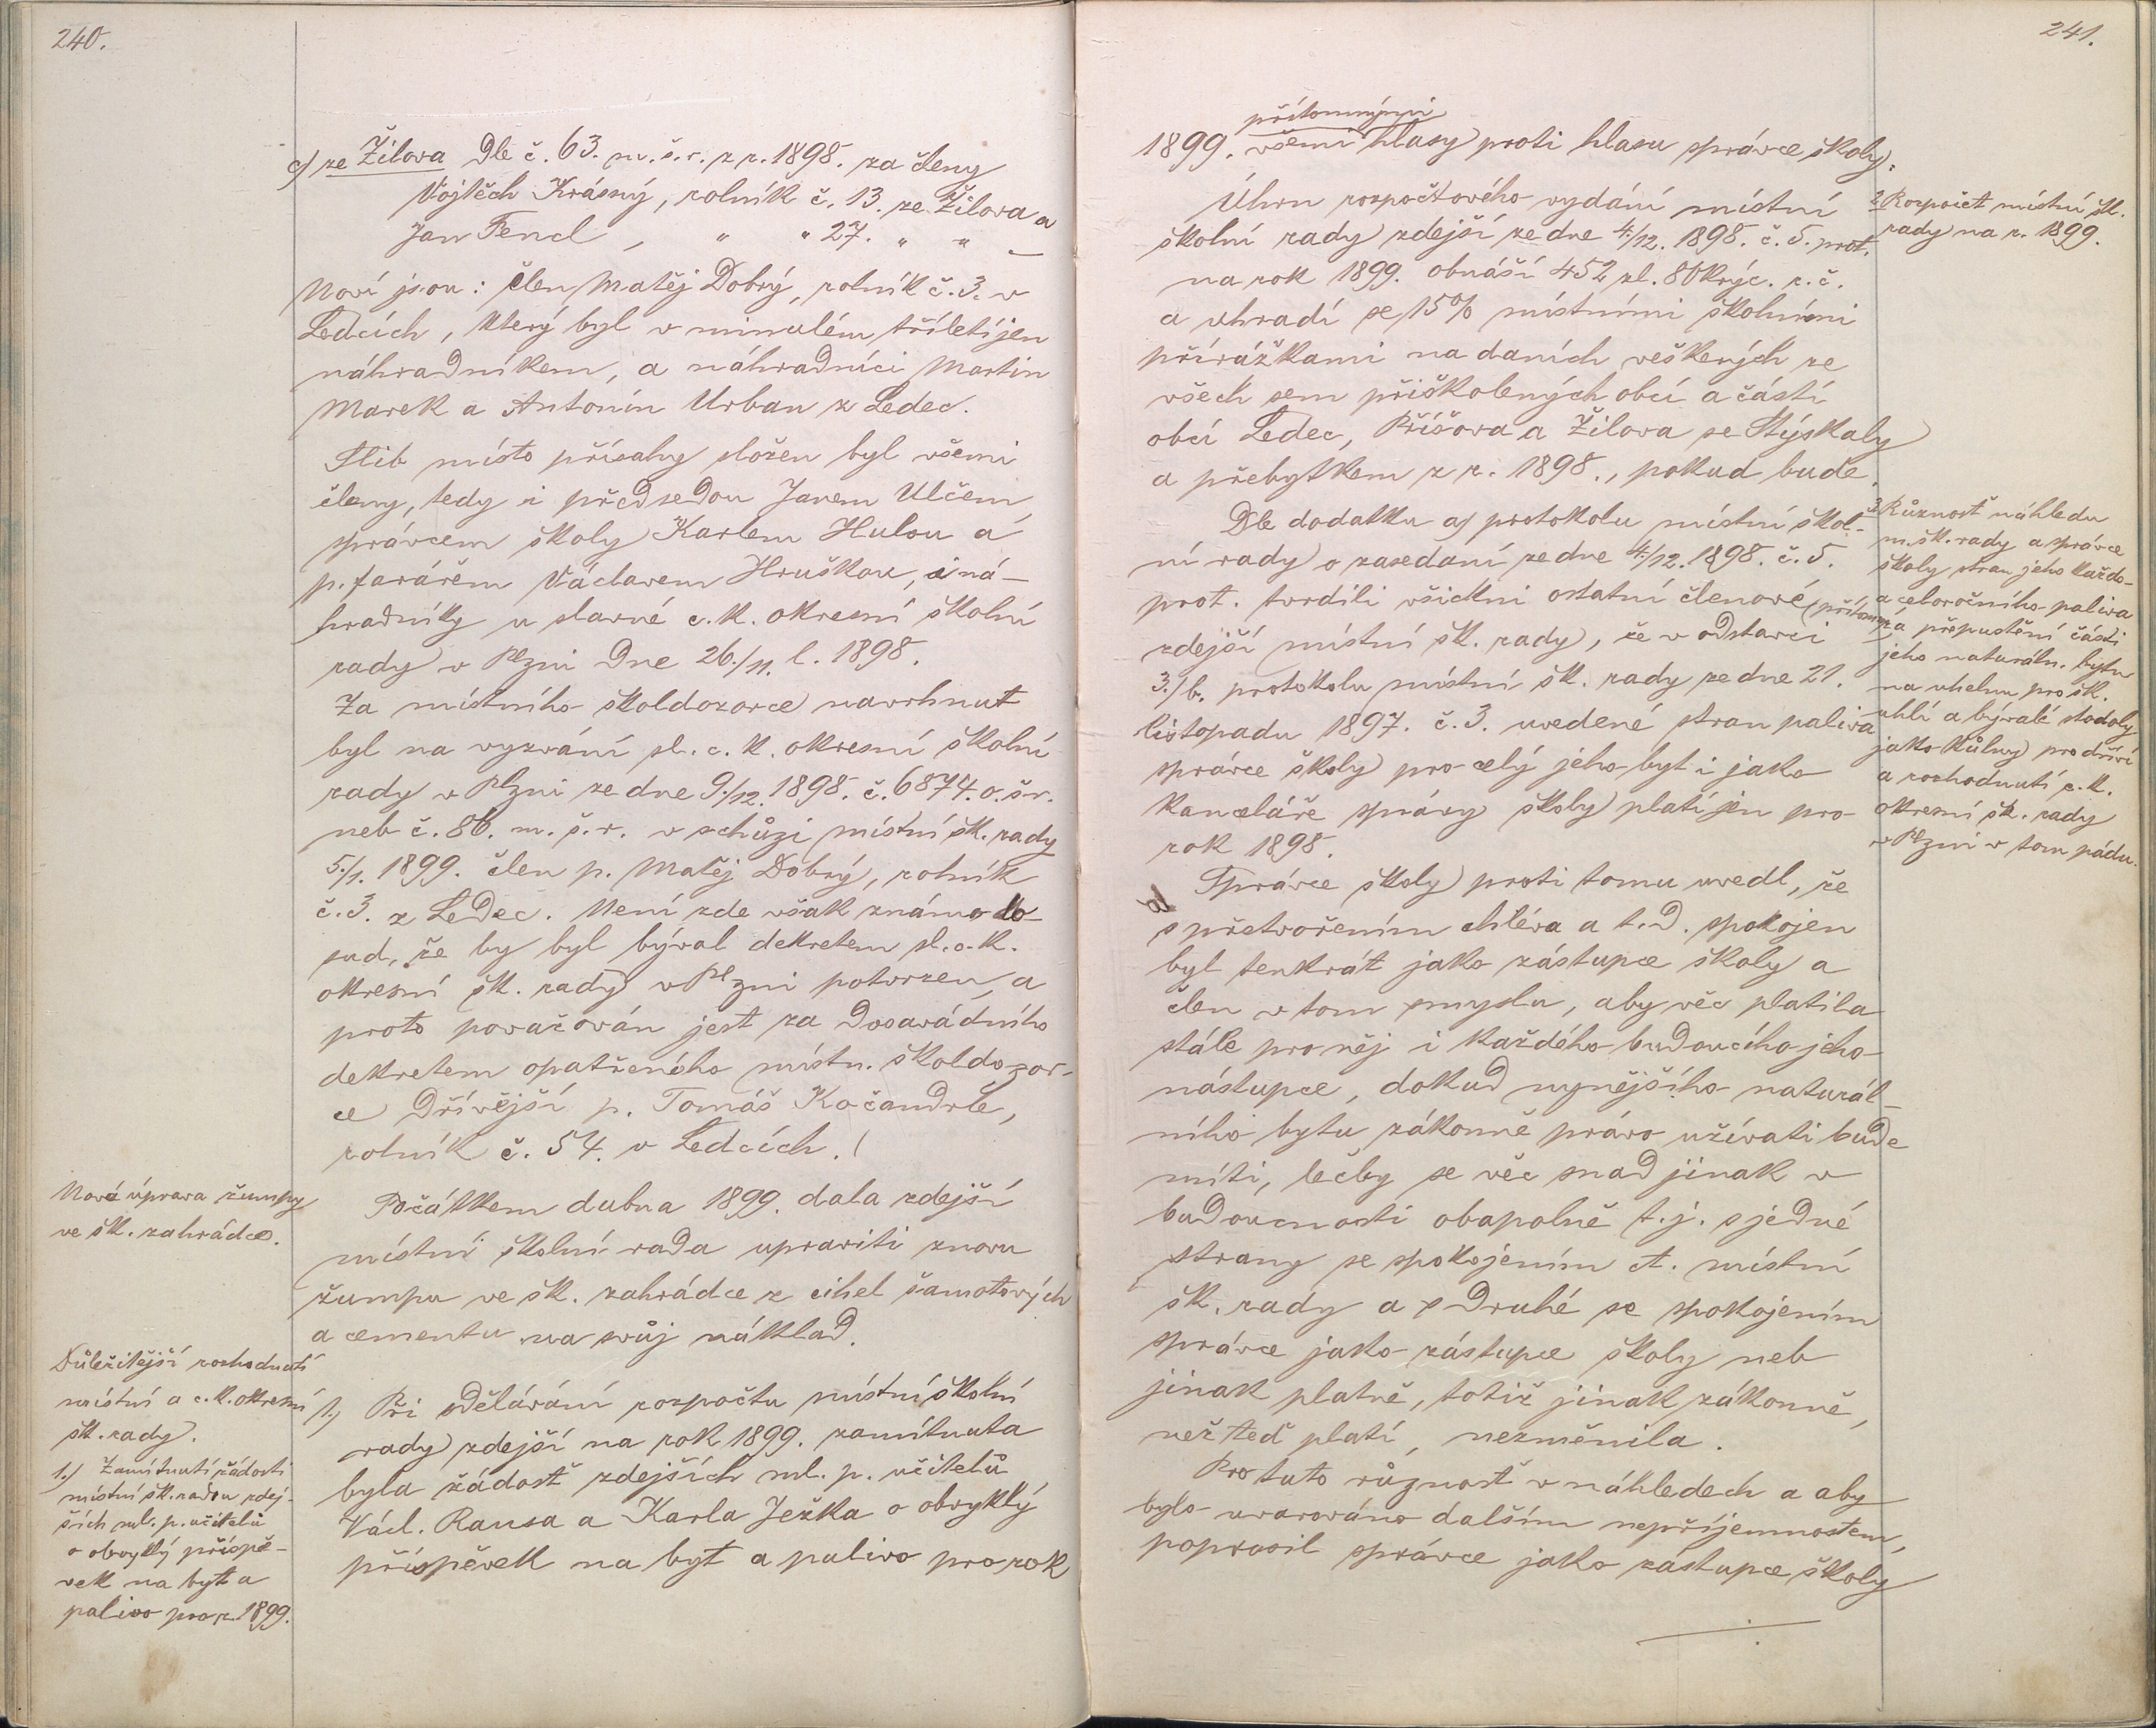 240.
c) ze Žilova Dle č. 63. m. š. r. z r. 1898. za členy
Vojtěch Krásný, rolník č. 13. ze Žilova a
Jan Fencl, " " 27. " " —
Noví jsou: člen Matěj Dobrý, rolník č. 3. v
Ledcích, který byl v minulém tříletí jen
náhradníkem, a náhradníci Martin
Marek a Antonín Urban z Ledec.
Slib místo přísahy složen byl všemi
členy, tedy i předsedou Janem Ulčem,
správcem školy Karlem Hulou a
p. farářem Václavem Hruškou, i ná-
hradníky u slavné c. k. okresní školní
rady v Plzni dne 26./11. l. 1898.
Za místního školdozorce navrhnut
byl na vyzvání sl. c. k. okresní školní
rady v Plzni ze dne 9./12. 1898. č. 6874. o. š. r.
neb č. 86. m. š. r. v schůzi místní šk. rady
5./1. 1899. člen p. Matěj Dobrý, rolník
č. 3. z Ledec. Není zde však známo do-
sud, že by byl býval dekretem sl. c. k.
okresní šk. rady v Plzni potvrzen, a
proto považován jest za dosavádního
dekretem opatřeného místn. školdozor-
ce dřívější p. Tomáš Kočandrle,
rolník č. 54. v Ledcích.!
Nová úprava žumpy
ve šk. zahrádce.
Počátkem dubna 1899. dala zdejší
místní školní rada upraviti znovu
žumpu ve šk. zahrádce z cihel šamotových
a cementu na svůj náklad.
Důležitější rozhodnutí
místní a c. k. okresní
šk. rady.
1.) Zamítnutí žádosti
místní šk. radou zdej-
ších ml. p. učitelů
o obvyklý příspě-
vek na byt a
palivo pro r. 1899.
1.) Při sdělávání rozpočtu místní školní
rady zdejší na rok 1899. zamítnuta
byla žádosť zdejších ml. p. učitelů
Václ. Rausa a Karla Ježka o obvyklý
příspěvek na byt a palivo pro rok
241.
přítomnými
1899. všemi hlasy proti hlasu správce školy.
2. Rozpočet místní šk.
rady na r. 1899.
Úhrn rozpočtového vydání místní
školní rady zdejší ze dne 4./12. 1898. č. 5. prot.
na rok 1899. obnáší 452 zl. 80 krýc. r. č.
a uhradí se 15% místními školními
přirážkami na daních veškerých ze
všech sem přiškolených obcí a částí
obcí Ledec, Příšova a Žilova se Stýskaly
a přebytkem z r. 1898., pokud bude.
3. Různosť náhledu
m. šk. rady a správce
školy stran jeho každo-
a celoročního paliva
a přepuštění části
jeho naturáln. bytu
na uhelnu pro šk.
uhlí a bývalé stodoly
jako kůlny pro dříví
a rozhodnutí c. k.
okresní šk. rady
v Plzni v tom pádu.
Dle dodatku a) protokolu místní škol-
ní rady o zasedaní ze dne 4./12. 1898. č. 5.
prot. tvrdili všickni ostatní členové (přítomní
zdejší místní šk. rady), že v odstavci
3./b. protokolu místní šk. rady ze dne 21.
listopadu 1897. č. 3. uvedené stran paliva
správce školy pro celý jeho byt i jako
kanceláře správy školy platí jen pro
rok 1898.
Správce školy proti tomu uvedl, že
s přetvořením chléva a t. d. spokojen
byl tenkrát jako zástupce školy a
člen v tom smyslu, aby věc platila
stále pro něj i každého budoucího jeho
nástupce, dokud nynějšího naturál-
ního bytu zákonně právo užívati bude
míti, lečby se věc snad jinak v
budoucnosti obapolně t. j. s jedné
strany se spokojením ct. místní
šk. rady a s druhé se spokojením
správce jako zástupce školy neb
jinak platně, totiž jinak zákonně,
než teď platí, nezměnila.
Pro tuto různosť v náhledech a aby
bylo uvarováno dalším nepříjemnostem,
poprosil správce jako zástupce školy